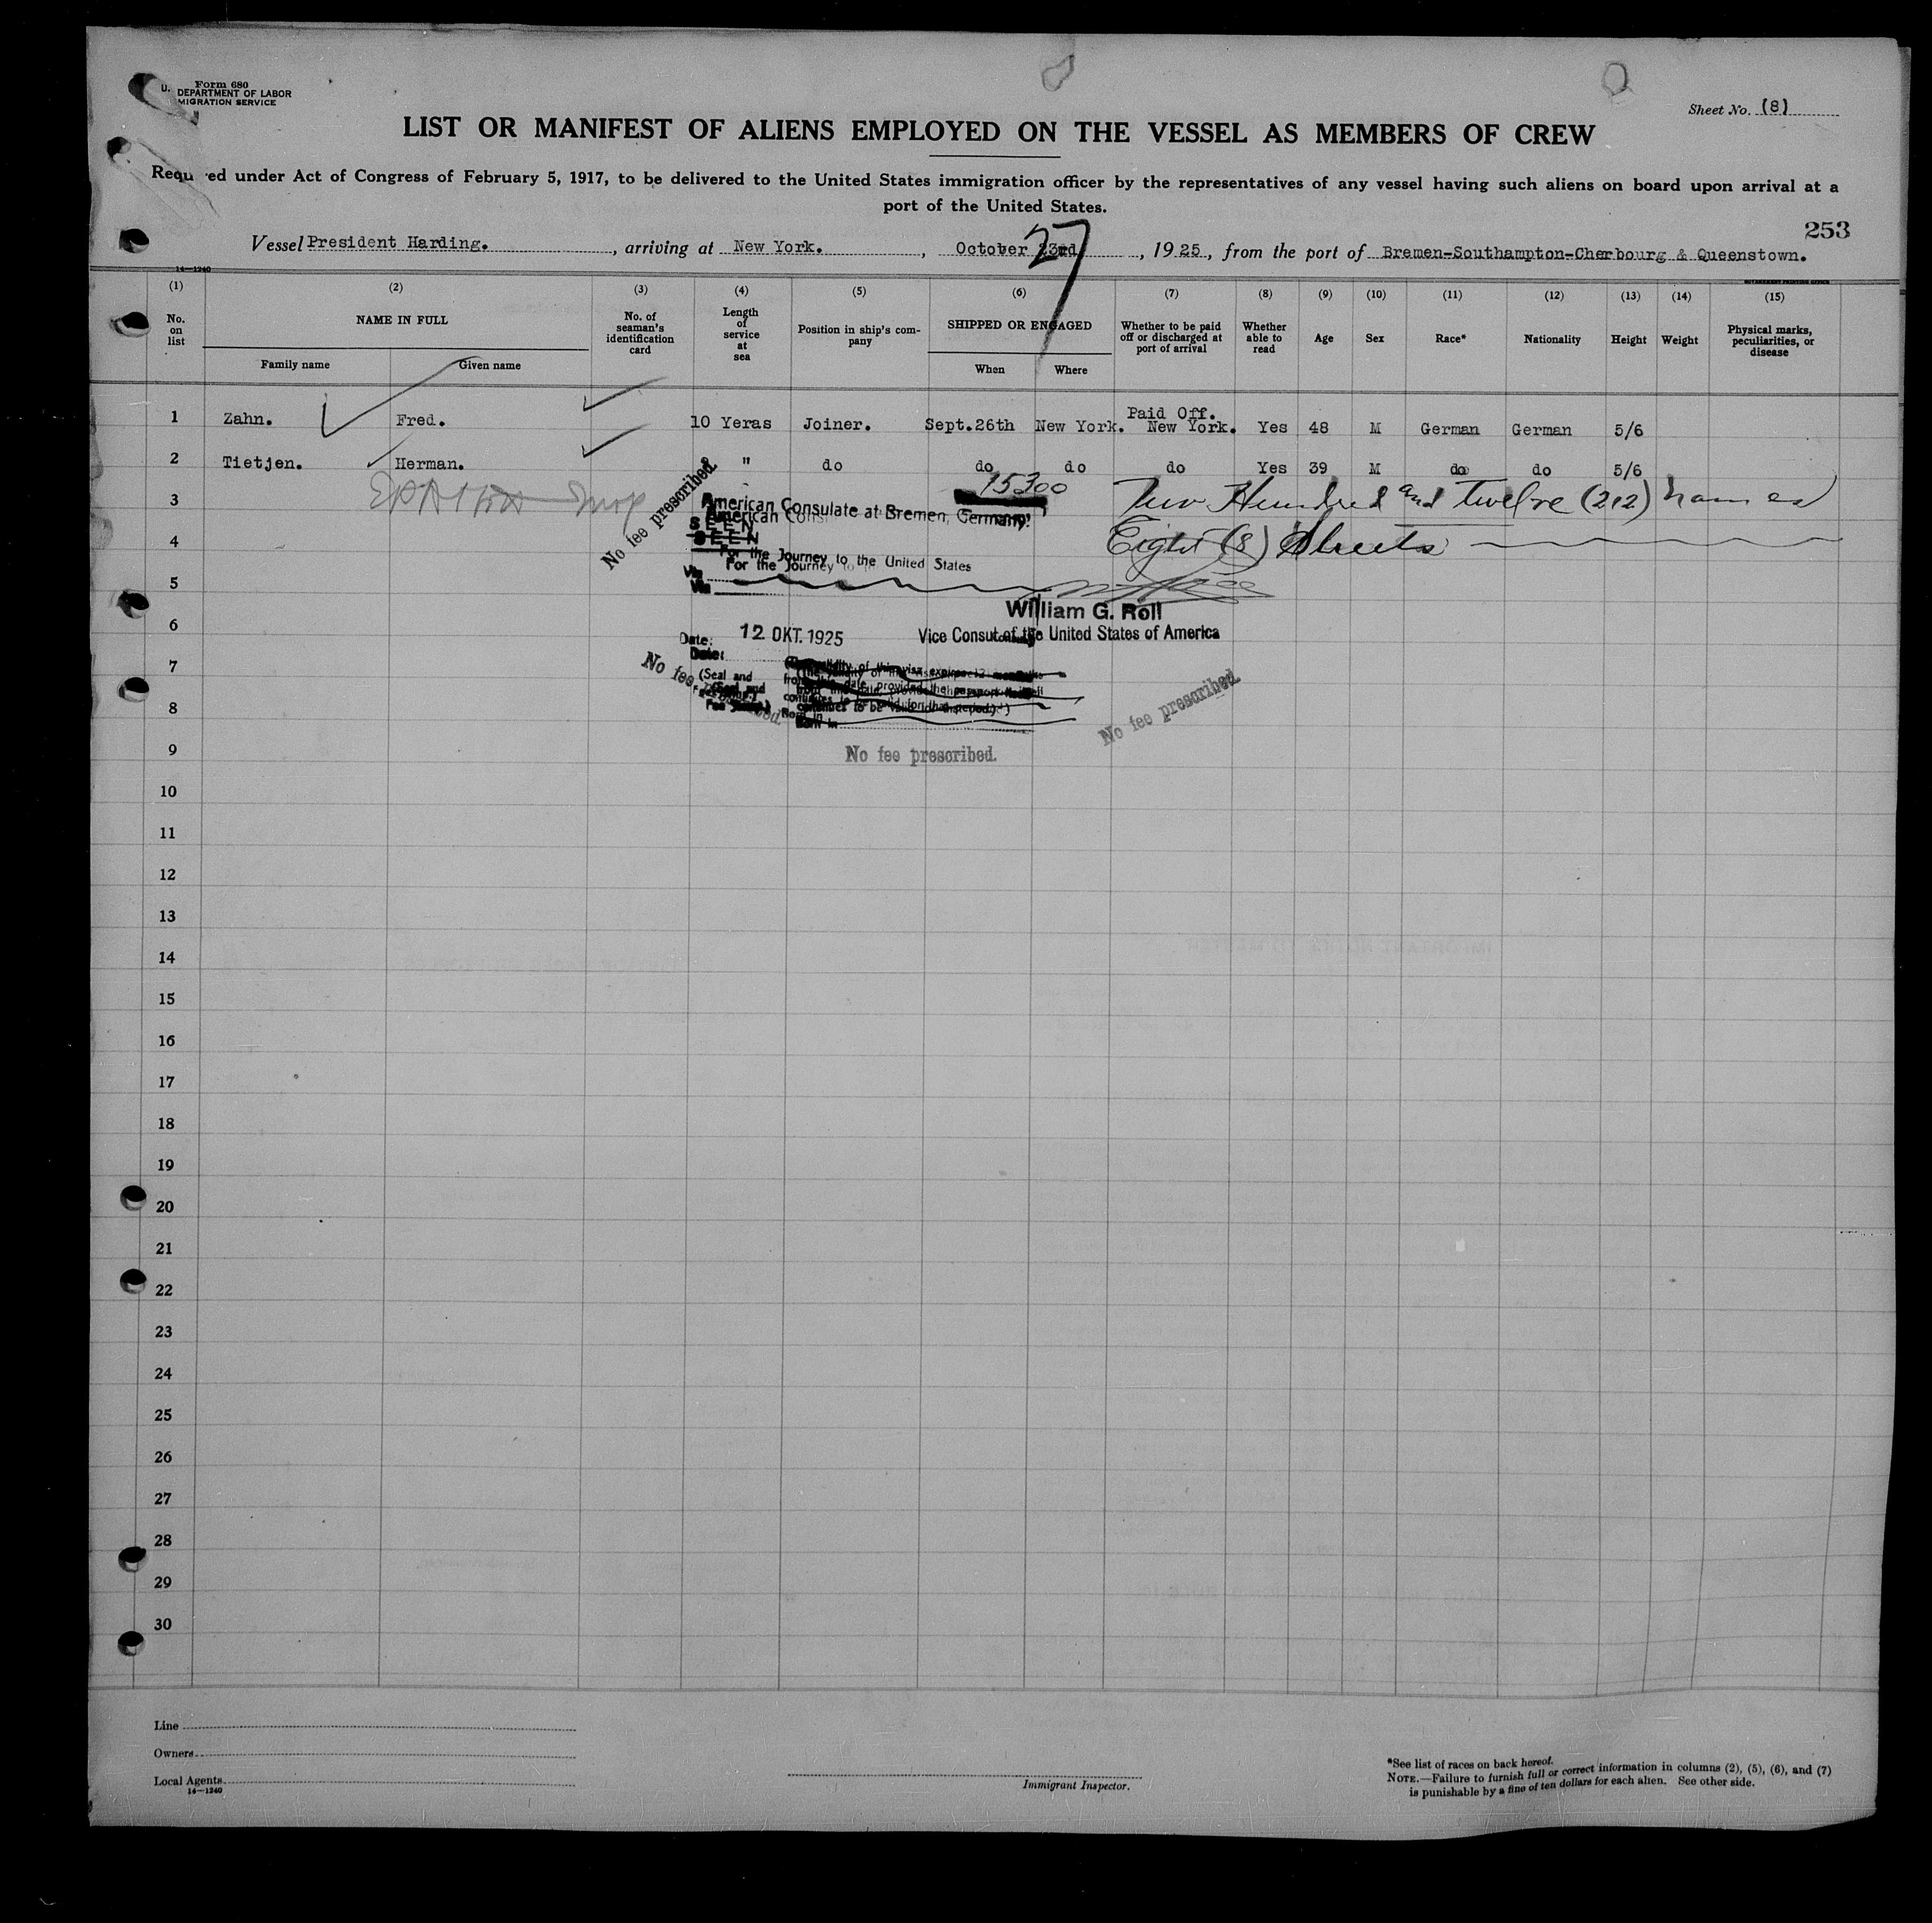 Form 680
U. DEPARTMENT OF LABOR
MIGRATION SERVICE
Sheet No. (8)
LIST OR MANIFEST OF ALIENS EMPLOYED ON THE VESSEL AS MEMBERS OF CREW
Requ ed under Act of Congress of February 5, 1917, to be delivered to the United States immigration officer by the representatives of any vessel having such aliens on board upon arrival at a
port of the United States.
253
Vessel President Harding. , arriving at New York. , October 23rd 27 , 1925, from the port of Bremen-Southampton-Cherbourg & Queenstown.
14—1240
GOVERNMENT PRINTING OFFICE
(1) (2) (3) (4) (5) (6) (7) (8) (9) (10) (11) (12) (13) (14) (15)
No. on list
NAME IN FULL
Family name
Given name
No. of seaman's identification card
Length of service at sea
Position in ship's com-
pany
SHIPPED OR ENGAGED
When
Where
Whether to be paid off or discharged at port of arrival
Whether able to read
Age
Sex
Race*
Nationality
Height
Weight
Physical marks, peculiarities, or disease
Paid Off.
1 Zahn. Fred. 10 Yeras Joiner. Sept.26th New York. New York. Yes 48 M German German 5/6
2 Tietjen. Herman. " do do do do Yes 39 M do do 5/6
15300
3 Two Hundred and Twelve (212) names
4 Eight (8) Sheets
No fee prescribed.
American Consulate at Bremen, Germany.
American
SEEN
SEEN
For the Journey to the United States
For the Journey
5 Via
Via
William G. Roll
6 Date: 12 OKT. 1925 Vice Consul of the United States of America
Date:
7 No fee
(Seal and
8
No fee prescribed.
9 No fee prescribed.
10
11
12
13
14
15
16
17
18
19
20
21
22
23
24
25
26
27
28
29
30
Line
Owners
Local Agents
14—1240
Immigrant Inspector.
*See list of races on back hereof.
NOTE.—Failure to furnish full or correct information in columns (2), (5), (6), and (7)
is punishable by a fine of ten dollars for each alien. See other side.